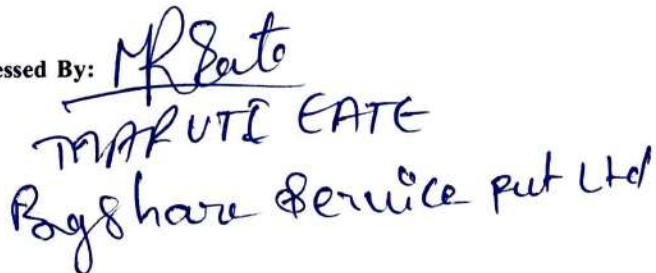 essed By: MREate
MARUTI EATE
Bigshare Service put Ltd